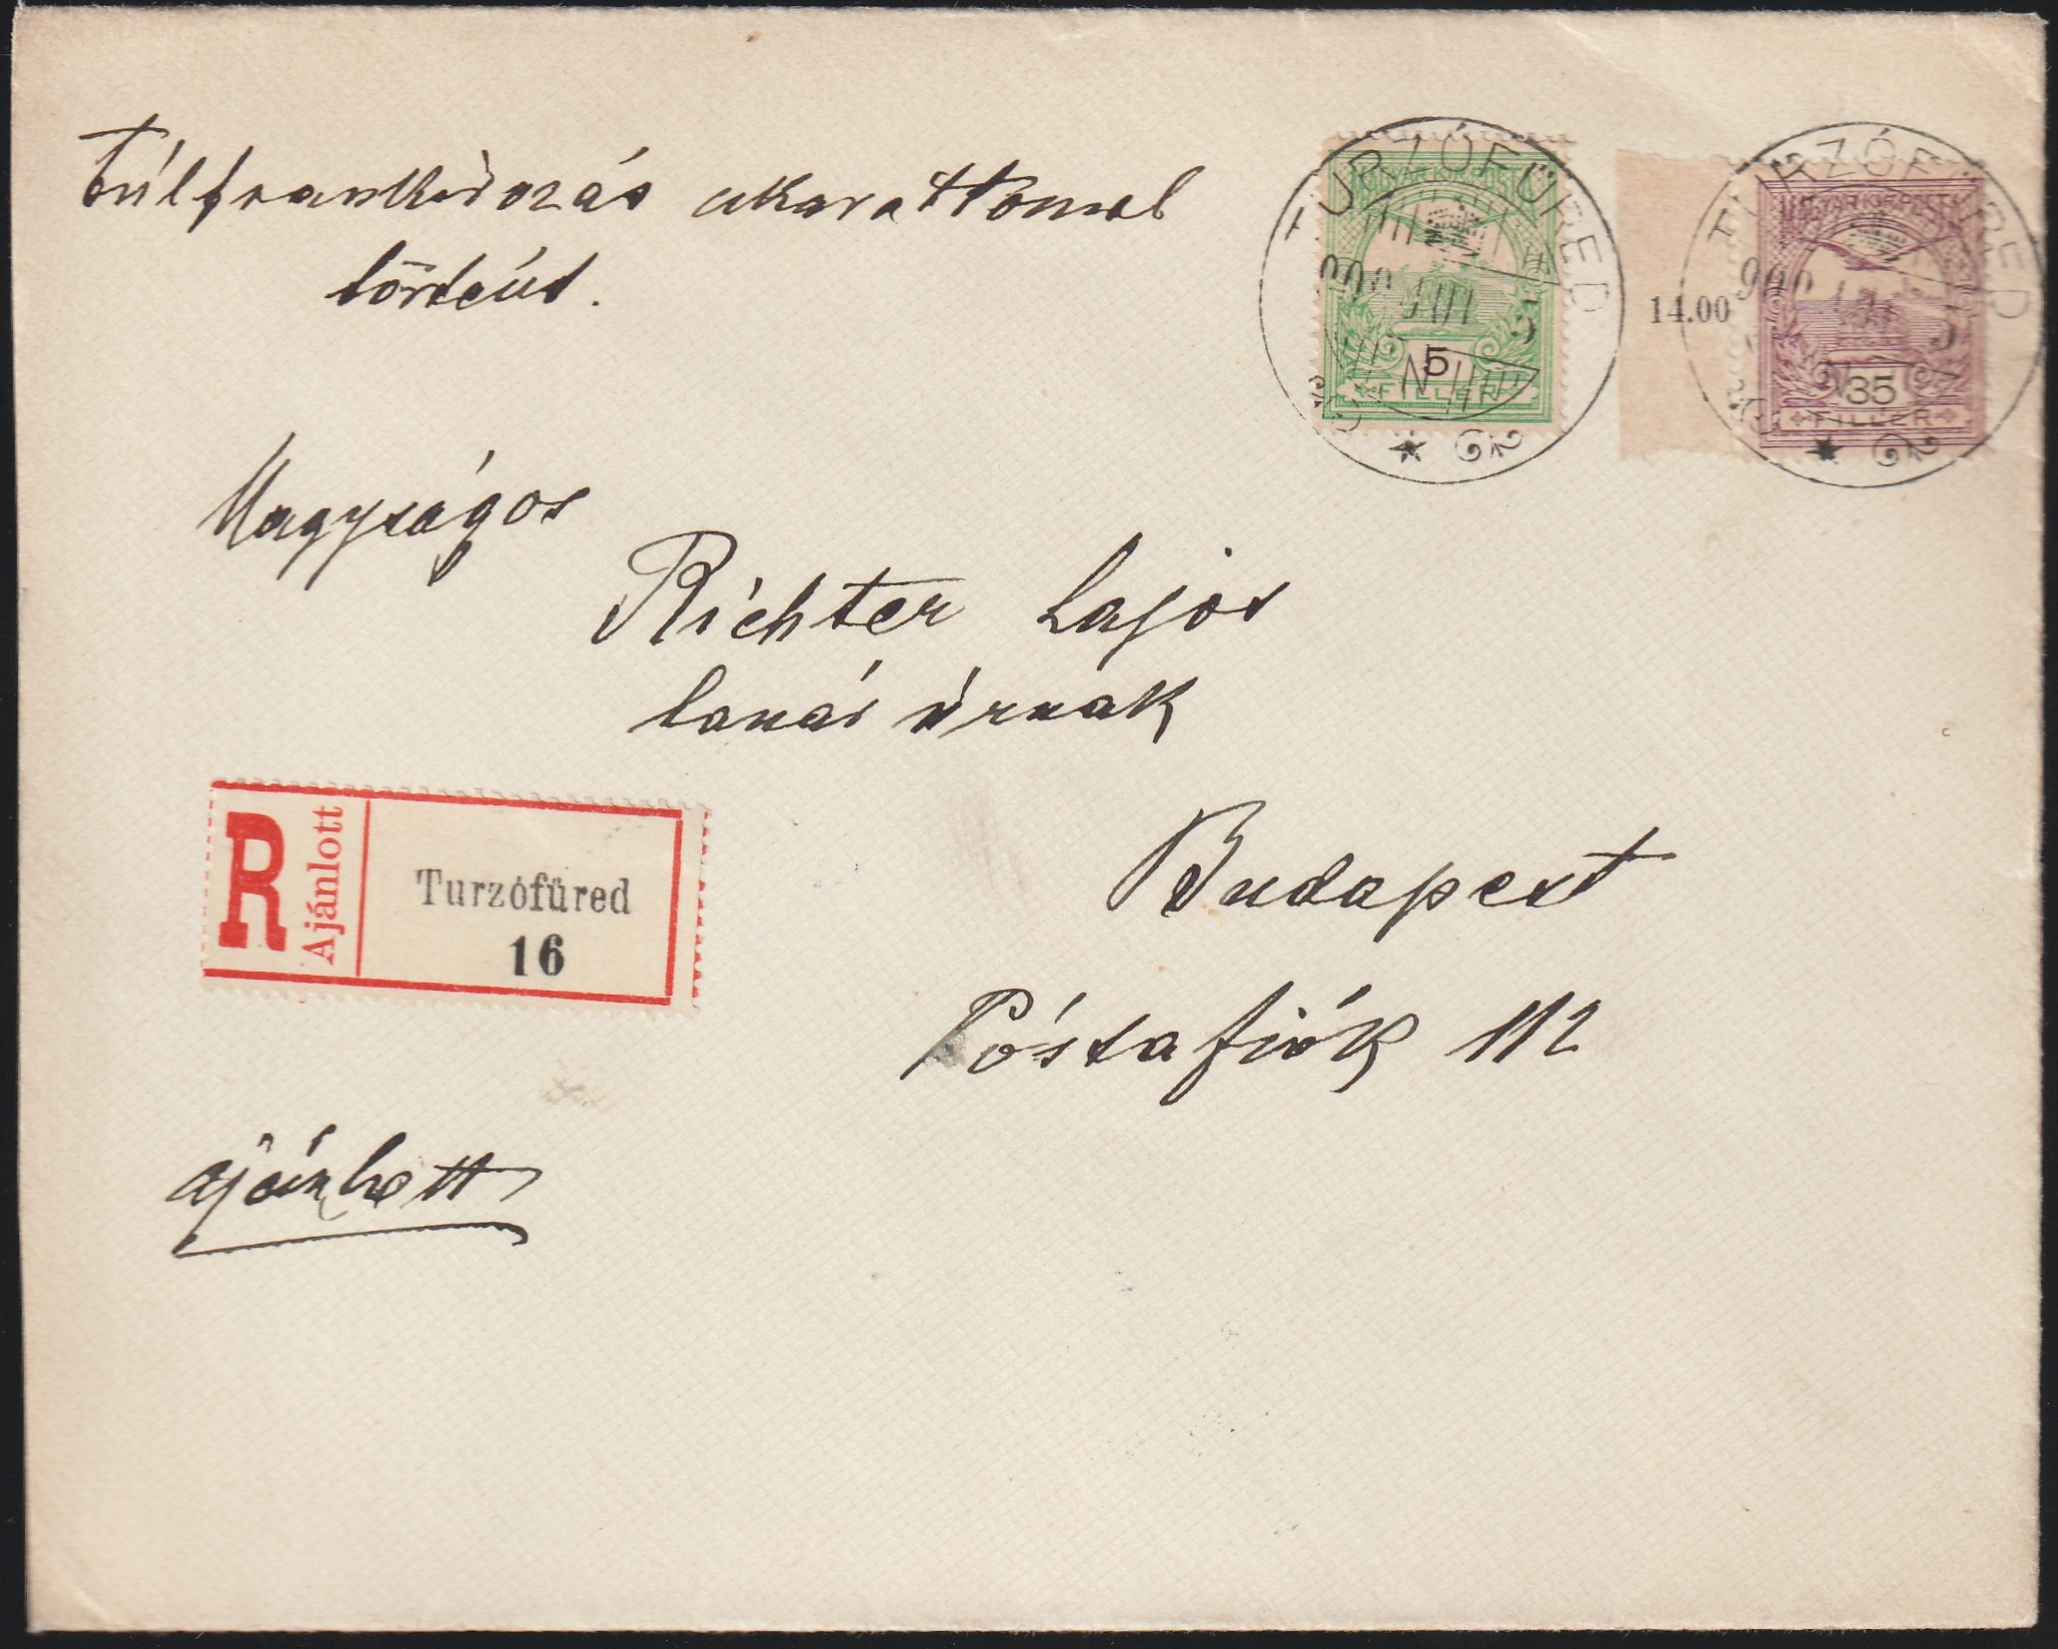 Túlfrankírozás akarattomal
történt.
TURZÓFÜRED
MAGYAR KIR. POSTA
5
FILLÉR
TURZÓFÜRED
14.00
MAGYAR KIR. POSTA
35
FILLÉR
Nagyságos
Richter Lajos
tanár úrnak
R
Ajánlott
Turzófüred
16
Budapest
Póstafiók 112
Ajánlott